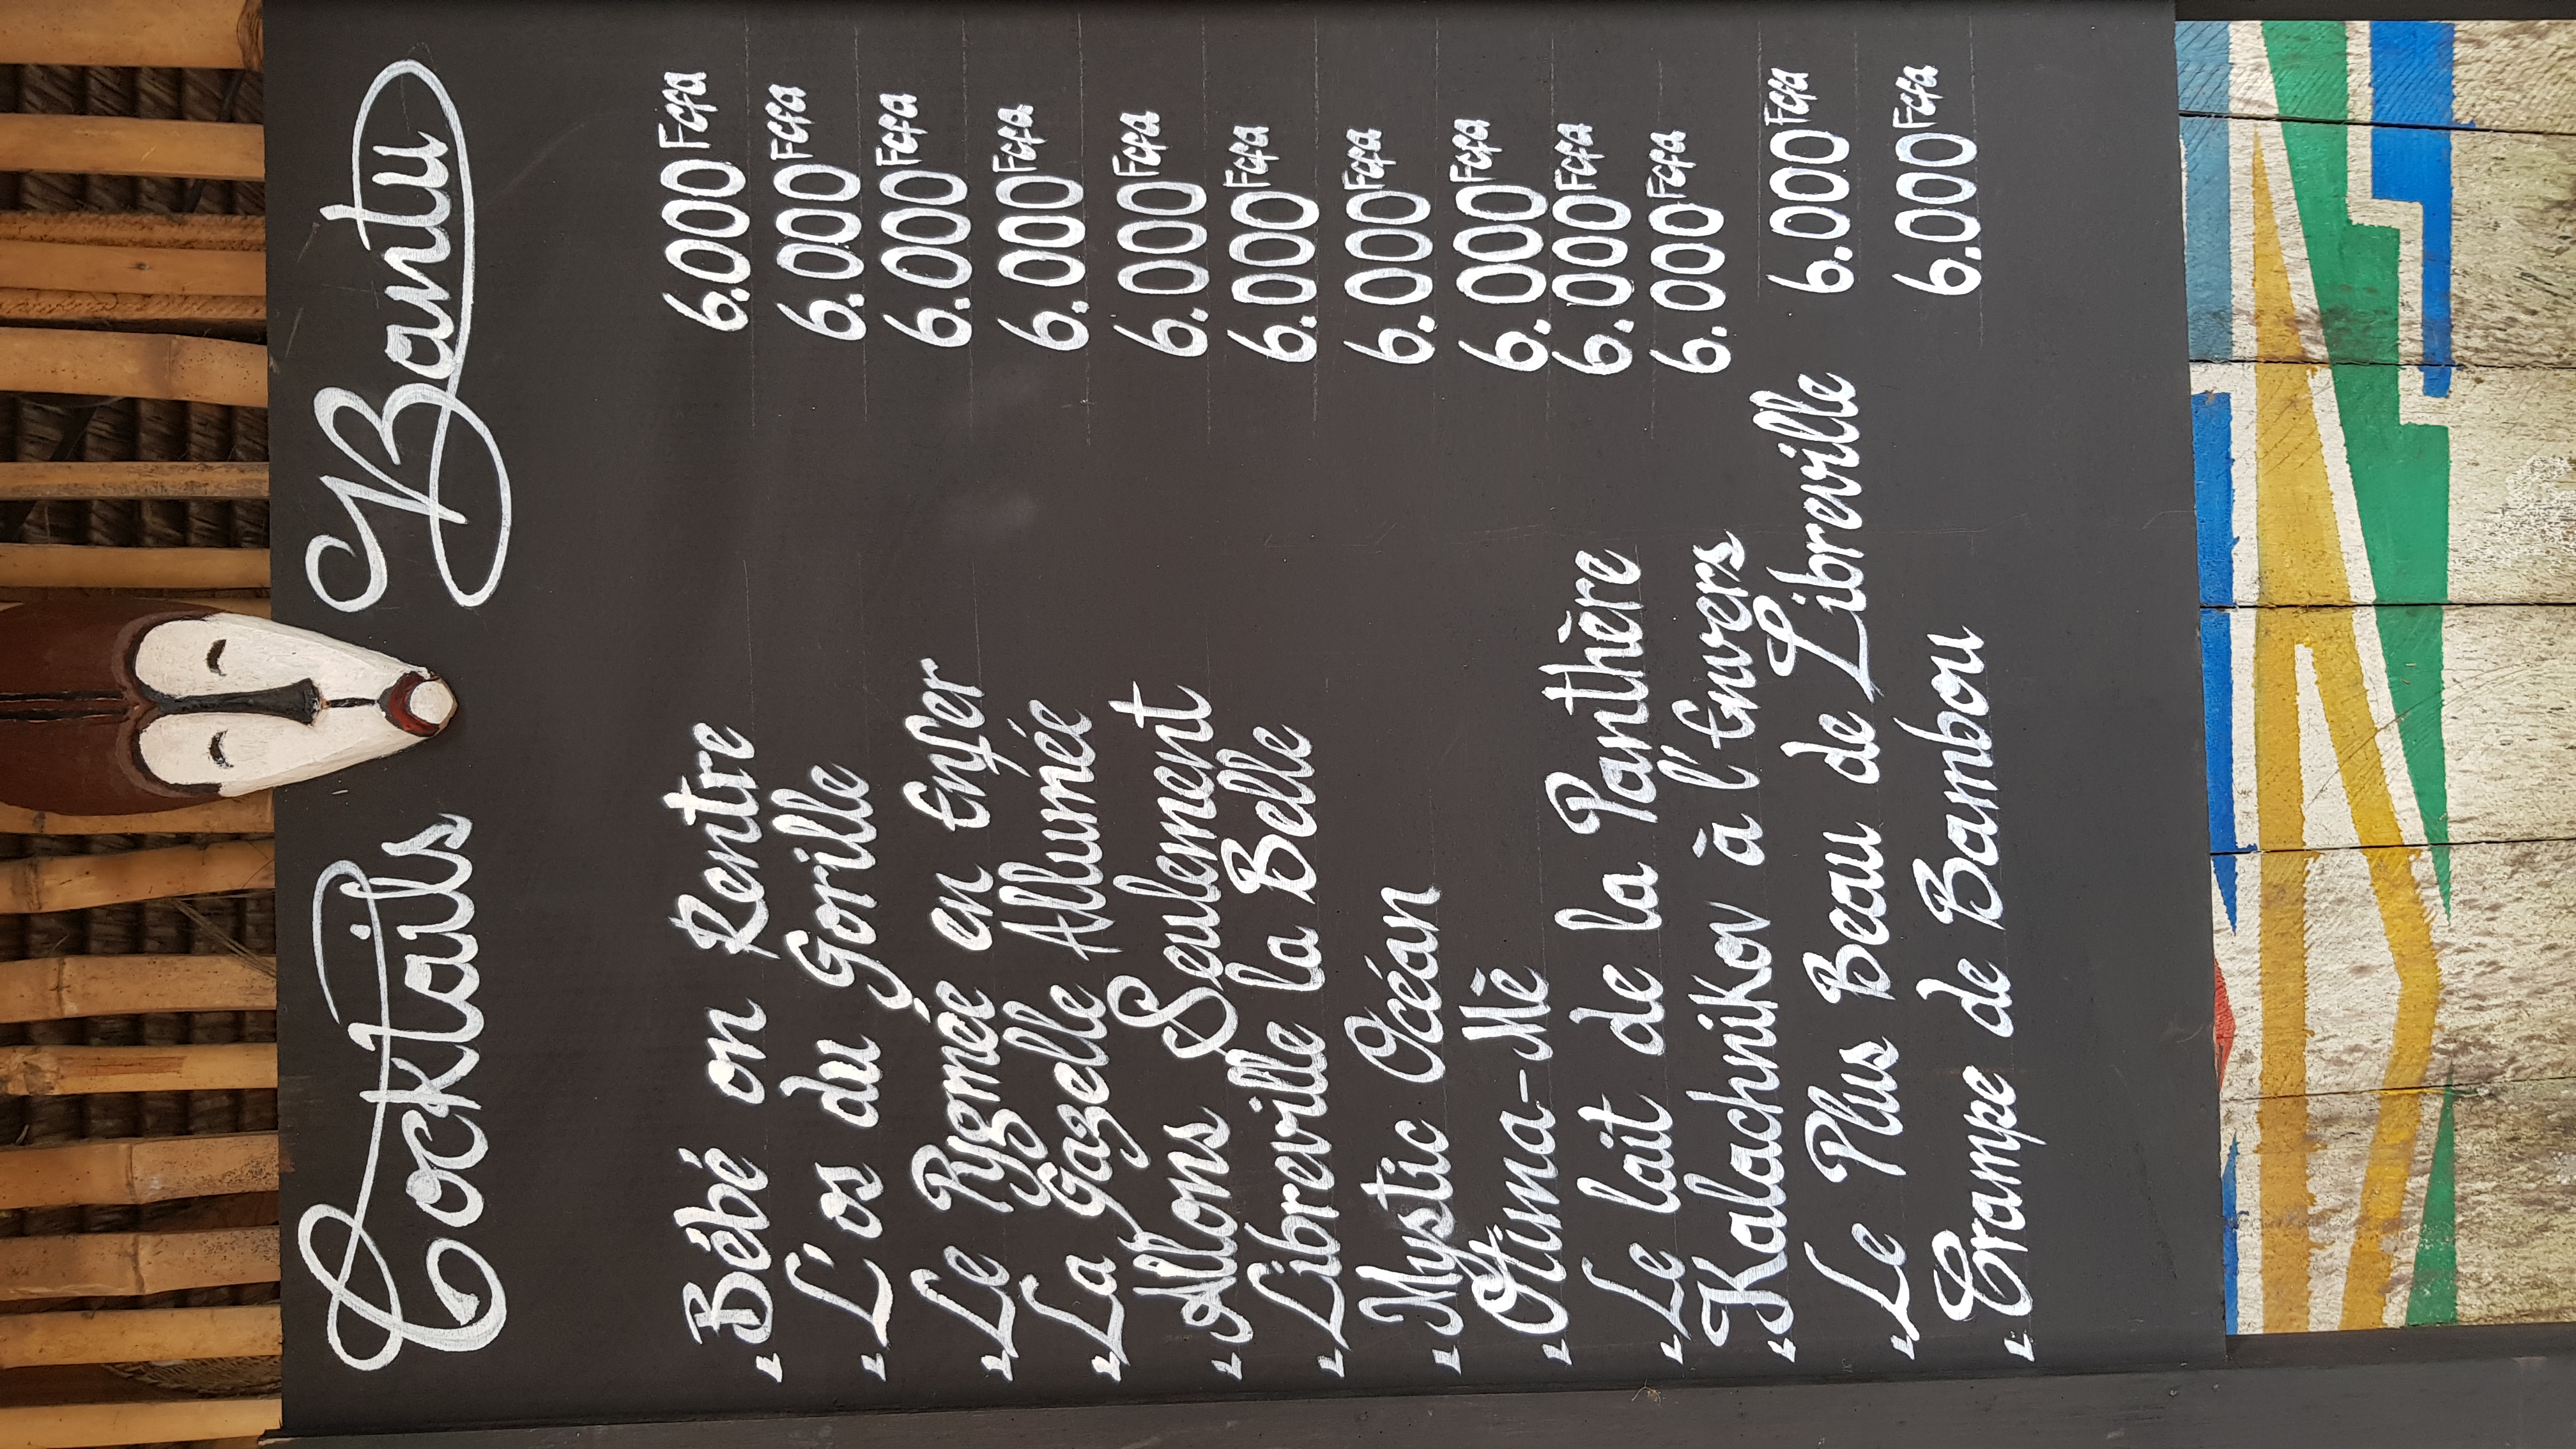 Cocktails Bantu
Bébé on Rentre 6.000 Fcfa
L'os du Gorille 6.000 Fcfa
Le Pygmée en Enfer 6.000 Fcfa
La Gazelle Allumée 6.000 Fcfa
Allons Seulement 6.000 Fcfa
Libreville la Belle 6.000 Fcfa
Mystic Océan 6.000 Fcfa
Otima-Mè 6.000 Fcfa
Le lait de la Panthère 6.000 Fcfa
Kalachnikov à l'Envers 6.000 Fcfa
Le Plus Beau de Libreville 6.000 Fcfa
Crampe de Bambou 6.000 Fcfa